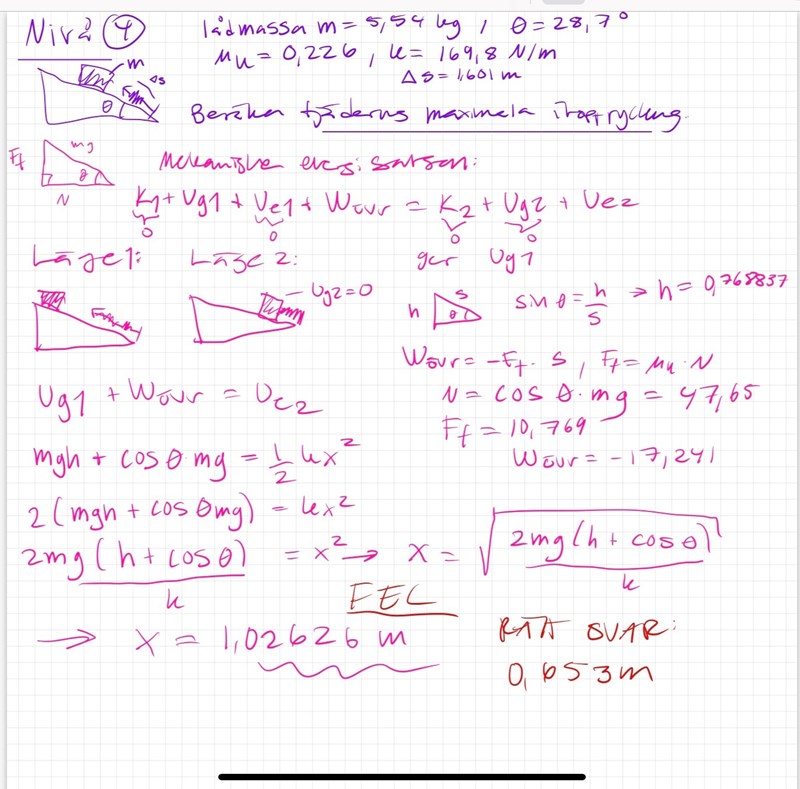 Nivå 4
lådmassa m = 5,54 kg, θ = 28,7°
μk = 0,226, k = 169,8 N/m
Δs = 1,601 m
m
Δs
θ
Beräkna fjäderns maximala ihoptryckning.
Ff
mg
θ
N
Mekaniska energisatsen:
K1 + Ug1 + Ue1 + Wövr = K2 + Ug2 + Ue2
0 0 0 0
Läge 1: Läge 2: ger Ug1
Ug2 = 0
h
s
θ
sin θ = h/s → h = 0,768837
Wövr = -Ff · s, Ff = μk · N
Ug1 + Wövr = Ue2
N = cos θ · mg = 47,65
Ff = 10,769
Wövr = -17,241
mgh + cos θ · mg = 1/2 kx²
2(mgh + cos θ mg) = kx²
2mg(h + cos θ)/k = x² → x = √(2mg(h + cos θ)/k)
FEL
→ x = 1,02626 m
RÄTT SVAR:
0,653 m